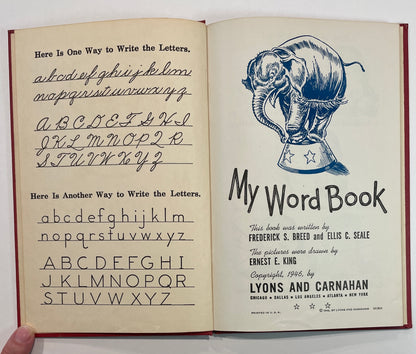 Here Is One Way to Write the Letters.
a b c d e f g h i j k l m
n o p q r s t u v w x y z
A B C D E F G H I
J K L M N O P Q R
S T U V W X Y Z
Here Is Another Way to Write the Letters.
a b c d e f g h i j k l m
n o p q r s t u v w x y z
A B C D E F G H I
J K L M N O P Q R
S T U V W X Y Z
My Word Book
This book was written by
FREDERICK S. BREED and ELLIS C. SEALE
The pictures were drawn by
ERNEST E. KING
Copyright, 1946, by
LYONS AND CARNAHAN
CHICAGO • DALLAS • LOS ANGELES • ATLANTA • NEW YORK
PRINTED IN U. S. A.